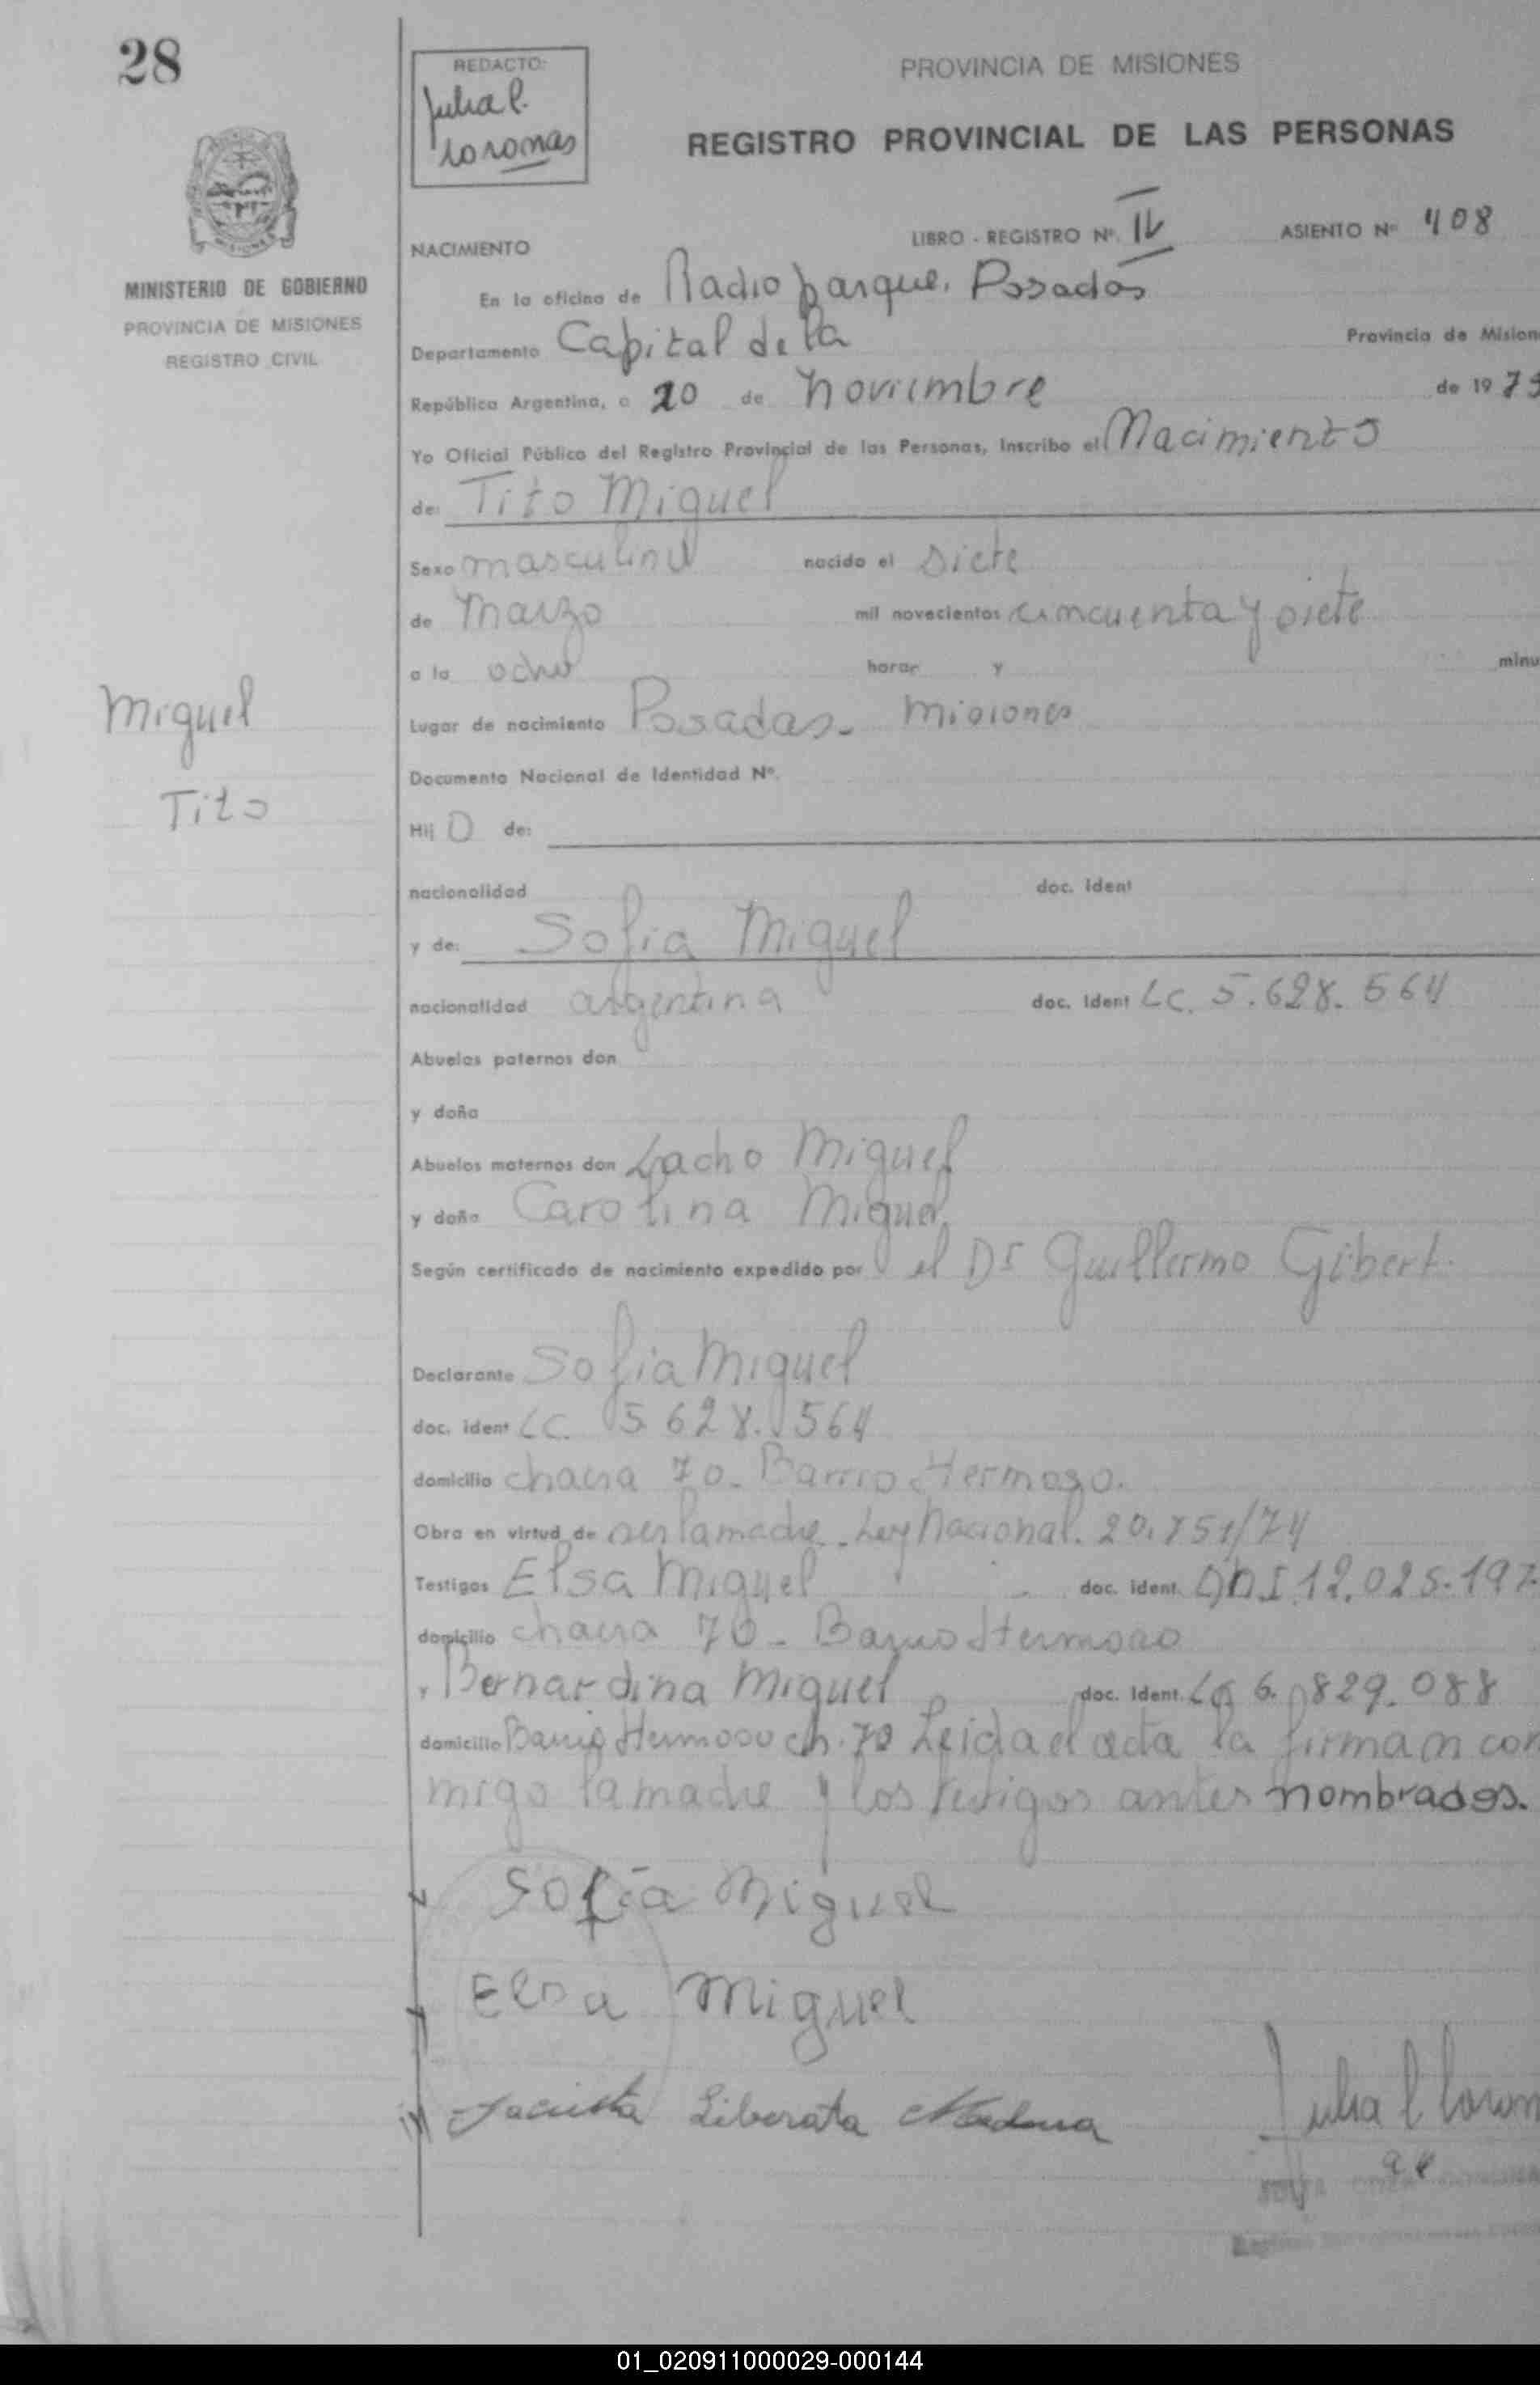 28
REDACTO:
Julia C.
Coronas
PROVINCIA DE MISIONES
REGISTRO PROVINCIAL DE LAS PERSONAS
MINISTERIO DE GOBIERNO
PROVINCIA DE MISIONES
REGISTRO CIVIL
NACIMIENTO
LIBRO - REGISTRO Nº IV ASIENTO Nº 408
En la oficina de Radio parque, Posadas
Departamento Capital de la Provincia de Mision
República Argentina, a 20 de noviembre de 19 75
Yo Oficial Público del Registro Provincial de las Personas, Inscribo el Nacimiento
de: Tito Miguel
Sexo masculino nacido el siete
de Marzo mil novecientos cincuenta y siete
a la ocho horas y minu
Miguel
Tito
Lugar de nacimiento Posadas - Misiones
Documento Nacional de Identidad Nº
Hij O de:
nacionalidad doc. ident
y de: Sofia Miguel
nacionalidad argentina doc. ident LC. 5.628.564
Abuelos paternos don
y doña
Abuelos maternos don Lacho Miguel
y doña Carolina Miguel
Según certificado de nacimiento expedido por el Dr Guillermo Gibert.
Declarante Sofia Miguel
doc. ident LC. 5.628.564
domicilio chacra 70 - Barrio Hermoso.
Obra en virtud de ser la madre - Ley Nacional. 20.751/74
Testigos Elsa Miguel doc. ident. DNI 12.025.197
domicilio chacra 70 - Barrio Hermoso
y Bernardina Miguel doc. ident. LC 6.829.088
domicilio Barrio Hermoso ch. 70 Leida el acta la firman con
migo la madre y los testigos antes nombrados.
Sofia Miguel
Elsa Miguel
Jacinta Liberata Medina
Julia C Coron
01_020911000029-000144